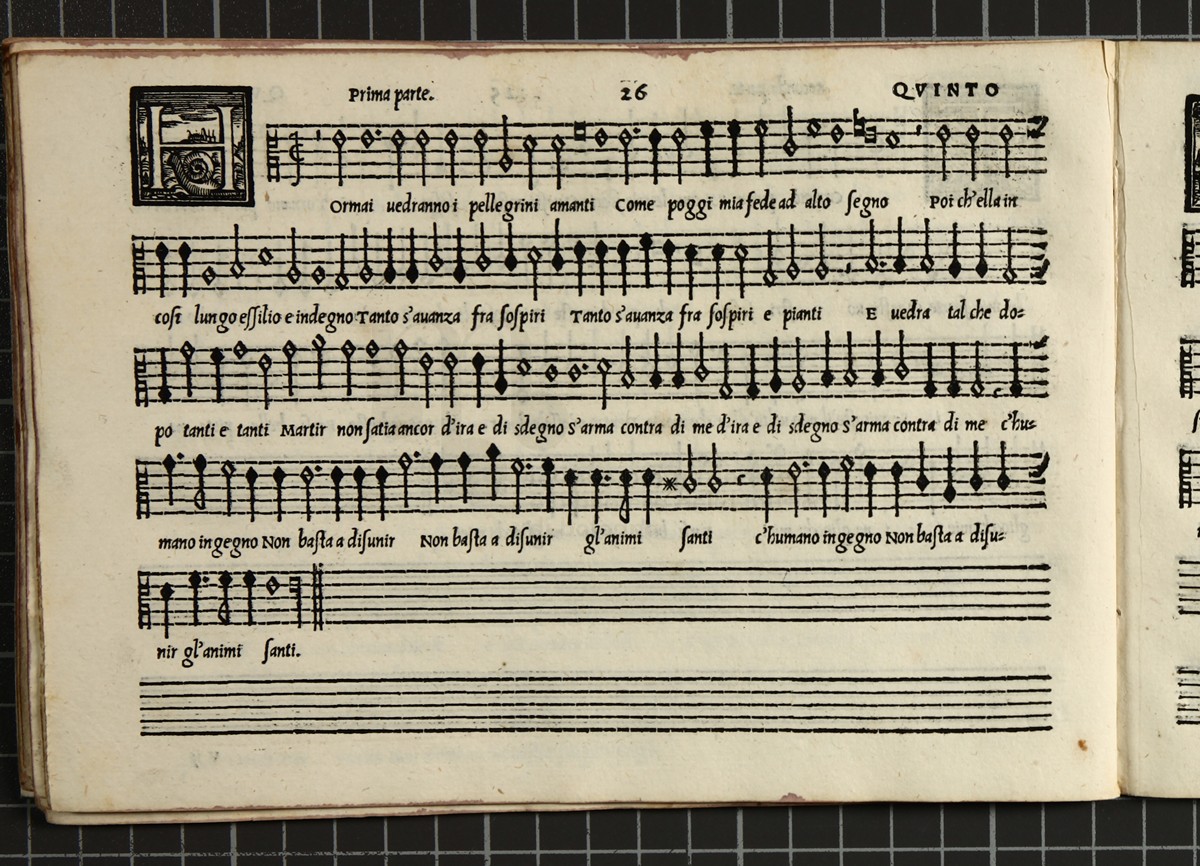 Prima parte. 26 QVINTO
HOrmai uedranno i pellegrini amanti Come poggi mia fede ad alto segno Poi ch'ella in
cosi lungo essilio e indegno Tanto s'auanza fra sospiri Tanto s'auanza fra sospiri e pianti E uedra tal che do=
po tanti e tanti Martir non satia ancor d'ira e di sdegno s'arma contra di me d'ira e di sdegno s'arma contra di me c'hu=
mano ingegno Non basta a disunir Non basta a disunir gl'animi santi c'humano ingegno Non basta a disu=
nir gl'animi santi.